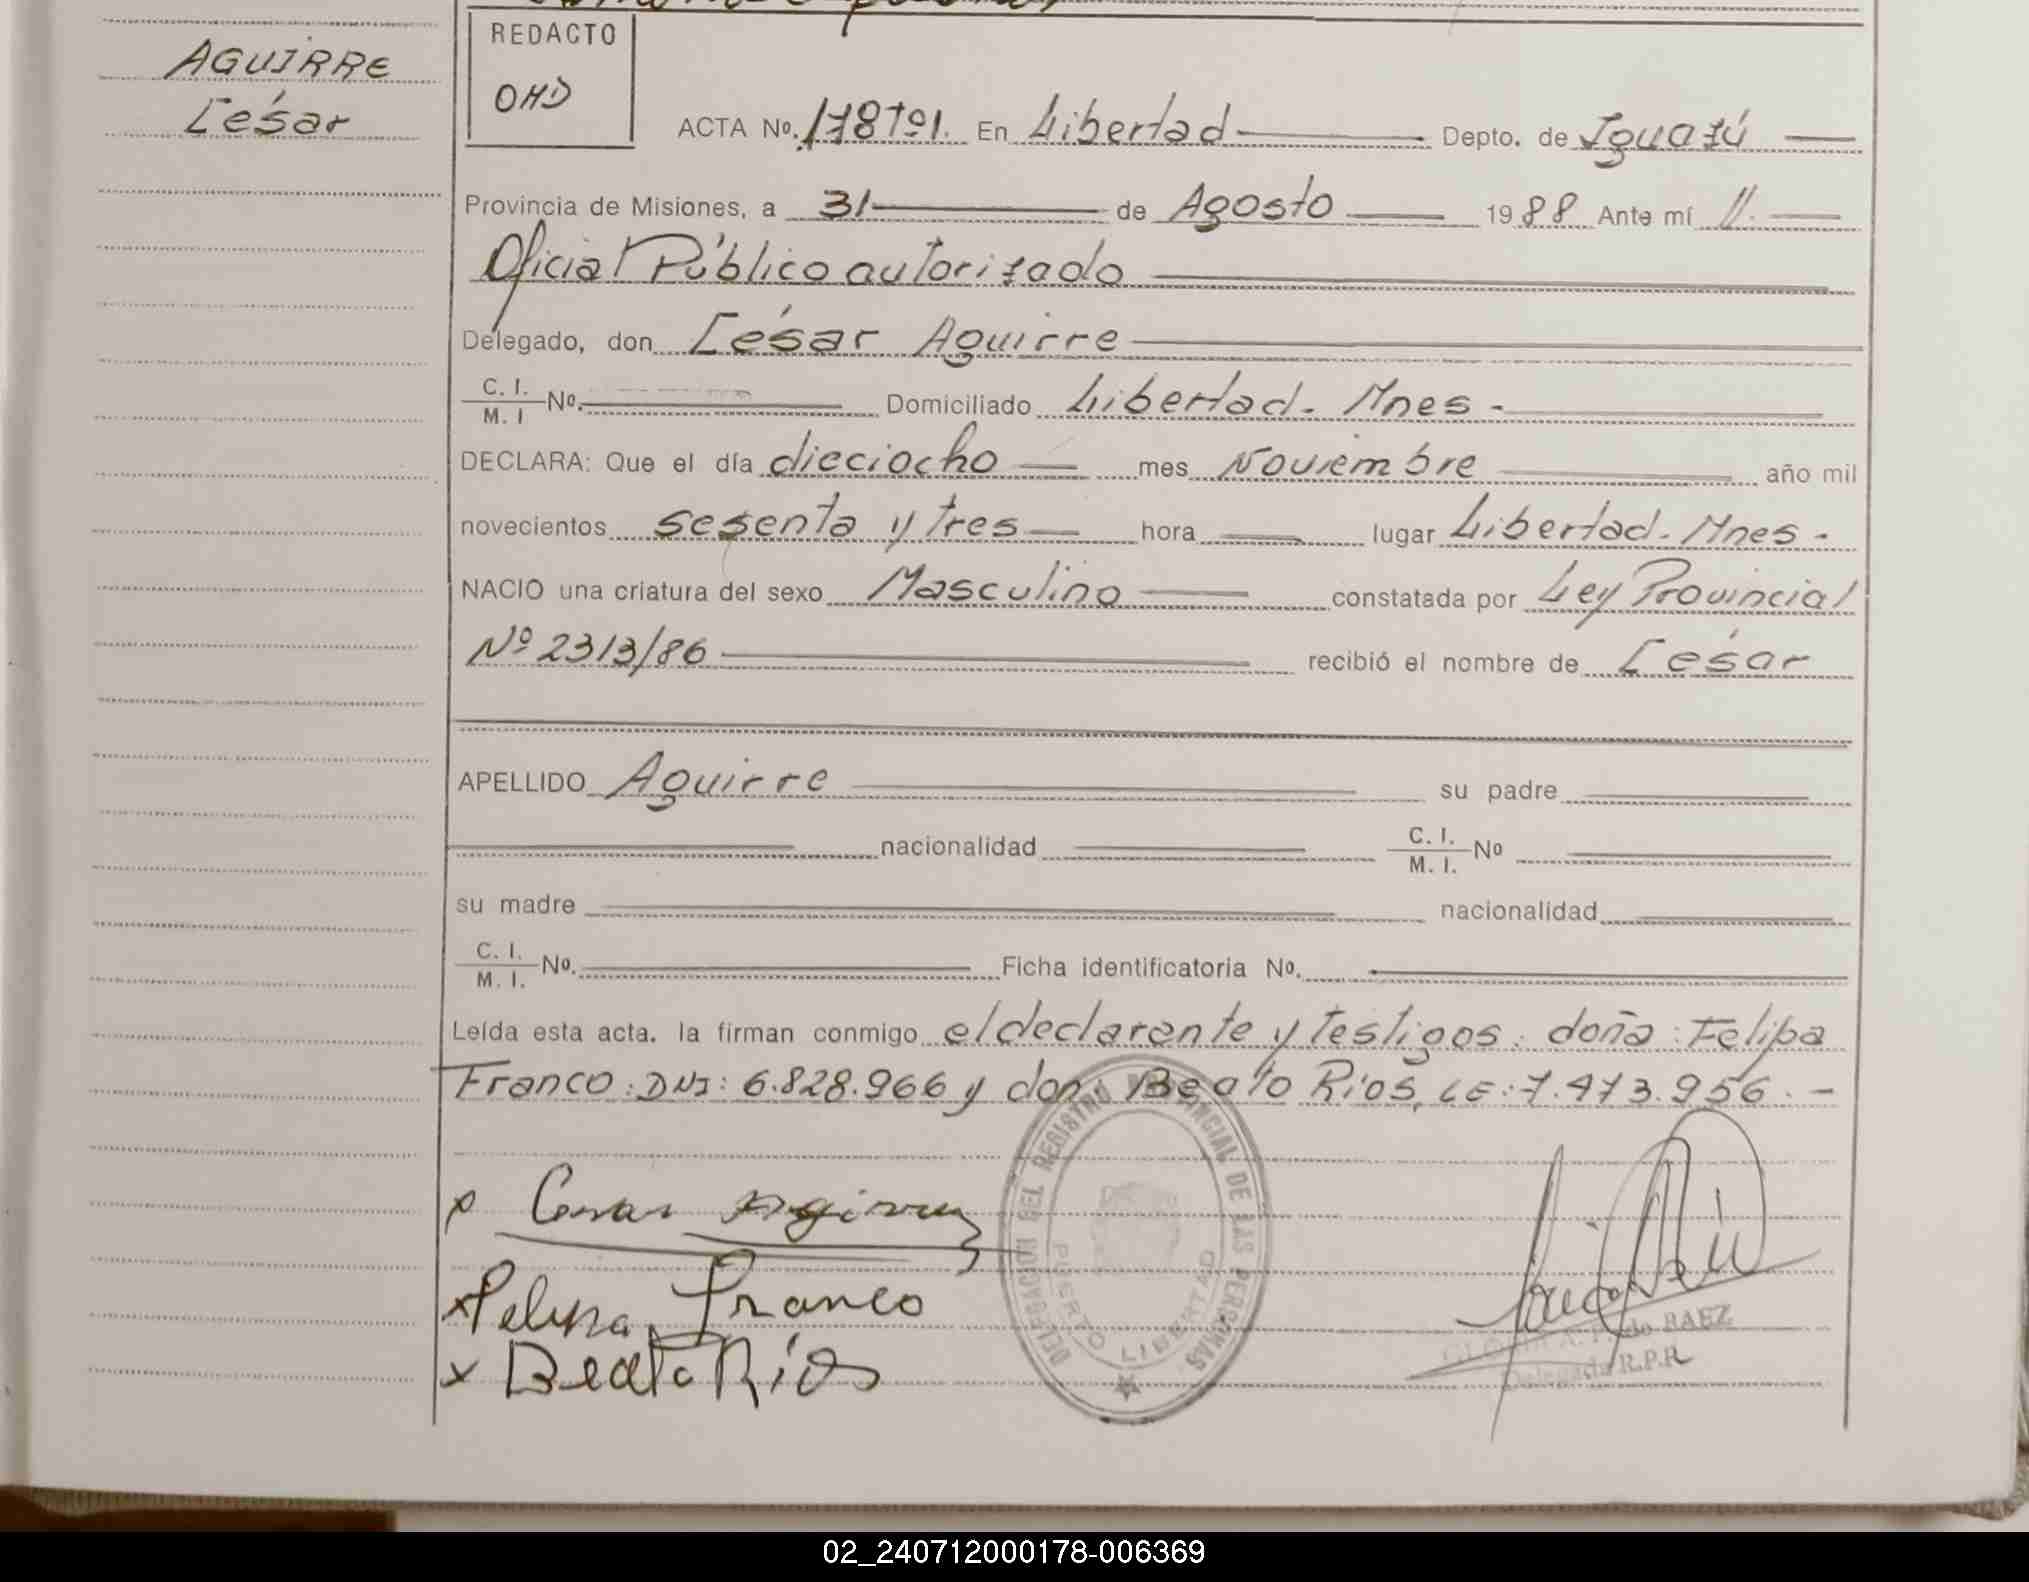 AGUIRRE
César
REDACTO
OHD
ACTA Nº. 178Tº1. En Libertad Depto. de Iguazú
Provincia de Misiones, a 31 de Agosto 1988 Ante mí
Oficial Público autorizado
Delegado, don César Aguirre
C. I. M. I Nº. Domiciliado Libertad. Mnes -
DECLARA: Que el día dieciocho mes Noviembre año mil
novecientos sesenta y tres hora lugar Libertad. Mnes -
NACIO una criatura del sexo Masculino constatada por Ley Provincial
Nº 2313/86 recibió el nombre de César
APELLIDO Aguirre su padre
nacionalidad C. I. M. I. Nº
su madre nacionalidad
C. I. M. I. Nº. Ficha identificatoria Nº.
Leída esta acta. la firman conmigo el declarante y testigos: doña: Felipa
Franco: DNI: 6.828.966 y don: Beato Ríos, LE: 7.473.956. -
x Cesar
x Felipa Franco
x Beato Ríos
DELEGACION DEL REGISTRO PROVINCIAL DE LAS PERSONAS
PUERTO LIBERTAD
de BAEZ
Delegada R.P.P.
02_240712000178-006369